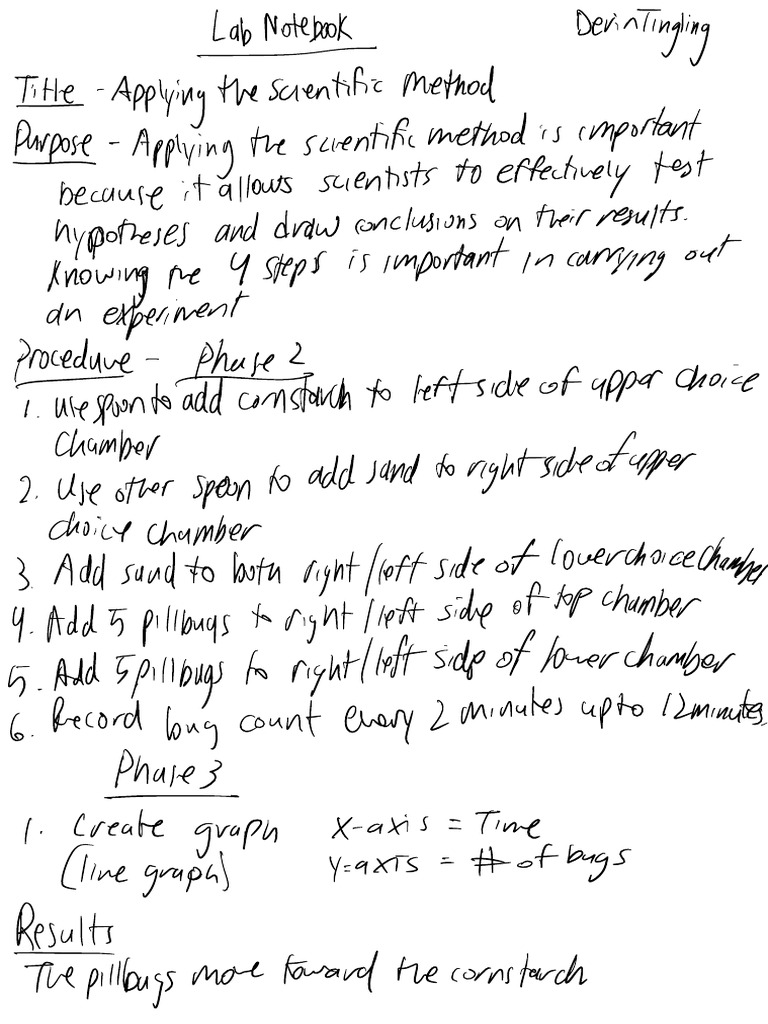 Lab Notebook
Devin Tingling
Title - Applying the scientific method
Purpose - Applying the scientific method is important
because it allows scientists to effectively test
hypotheses and draw conclusions on their results.
Knowing the 4 steps is important in carrying out
an experiment
Procedure - Phase 2
1. Use spoon to add cornstarch to left side of upper choice
chamber
2. Use other spoon to add sand to right side of upper
choice chamber
3. Add sand to both right/left side of lower choice chamber
4. Add 5 pillbugs to right/left side of top chamber
5. Add 5 pillbugs to right/left side of lower chamber
6. Record bug count every 2 minutes up to 12 minutes.
Phase 3
1. Create graph X-axis = Time
(line graph) Y=axis = # of bugs
Results
The pillbugs move toward the cornstarch